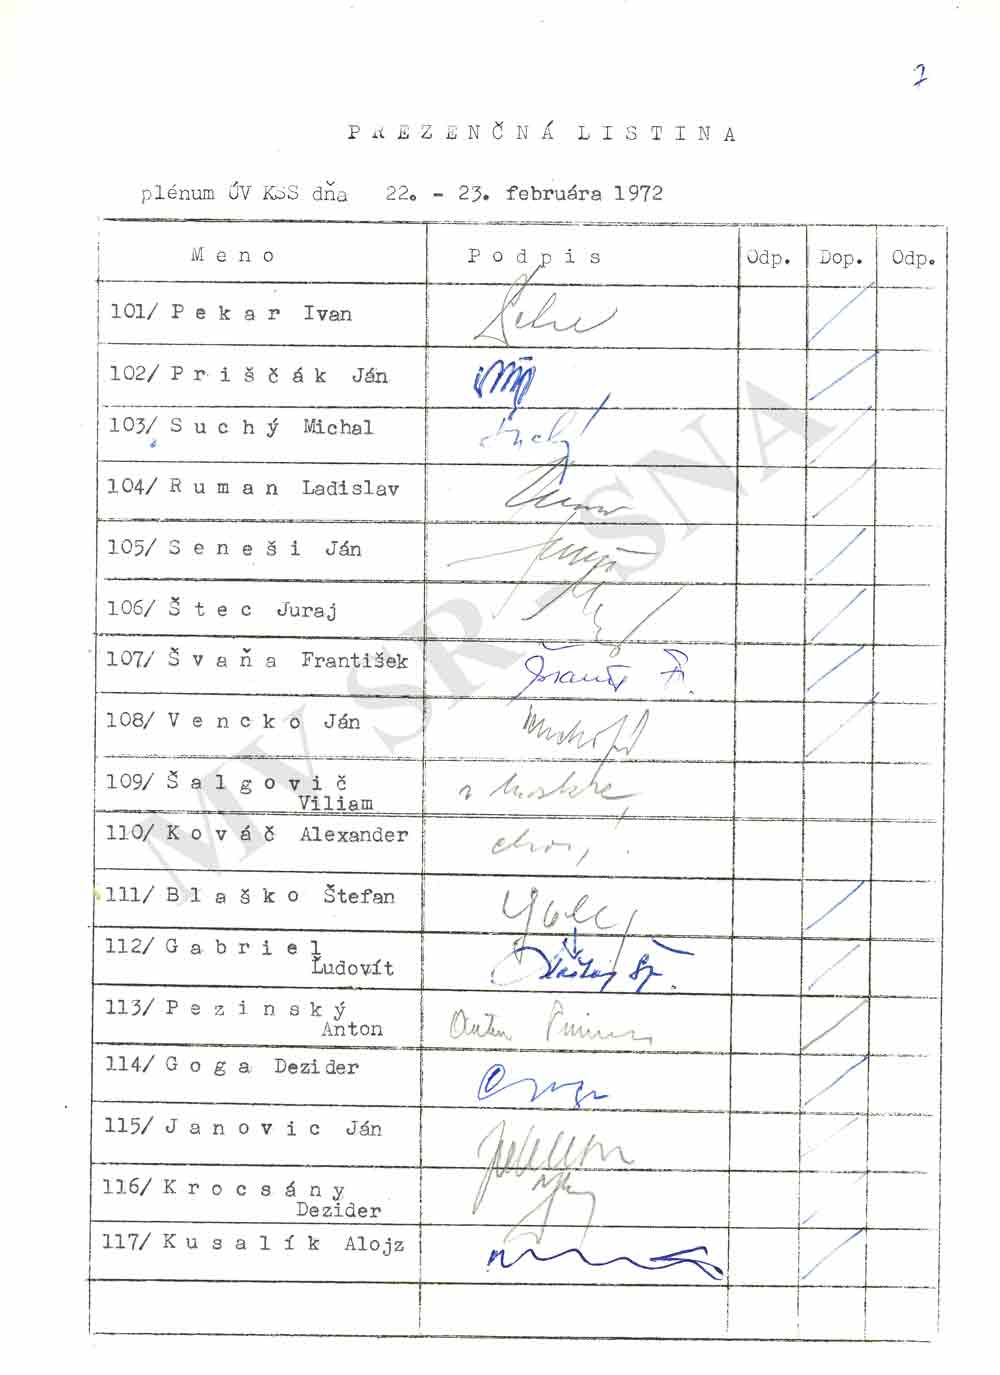 7
PREZENČNÁ LISTINA
plénum ÚV KSS dňa 22. - 23. februára 1972
Meno Podpis Odp. Dop. Odp.
101/ Pekar Ivan
102/ Priščák Ján
103/ Suchý Michal Suchý
104/ Ruman Ladislav Ruman
105/ Seneši Ján
106/ Štec Juraj
107/ Švaňa František
108/ Vencko Ján
109/ Šalgovič v Moskve
Viliam
110/ Kováč Alexander chorý
111/ Blaško Štefan
112/ Gabriel
Ľudovít
113/ Pezinský
Anton Anton
114/ Goga Dezider
115/ Janovic Ján
116/ Krocsány
Dezider
117/ Kusalík Alojz
MV SR - SNA